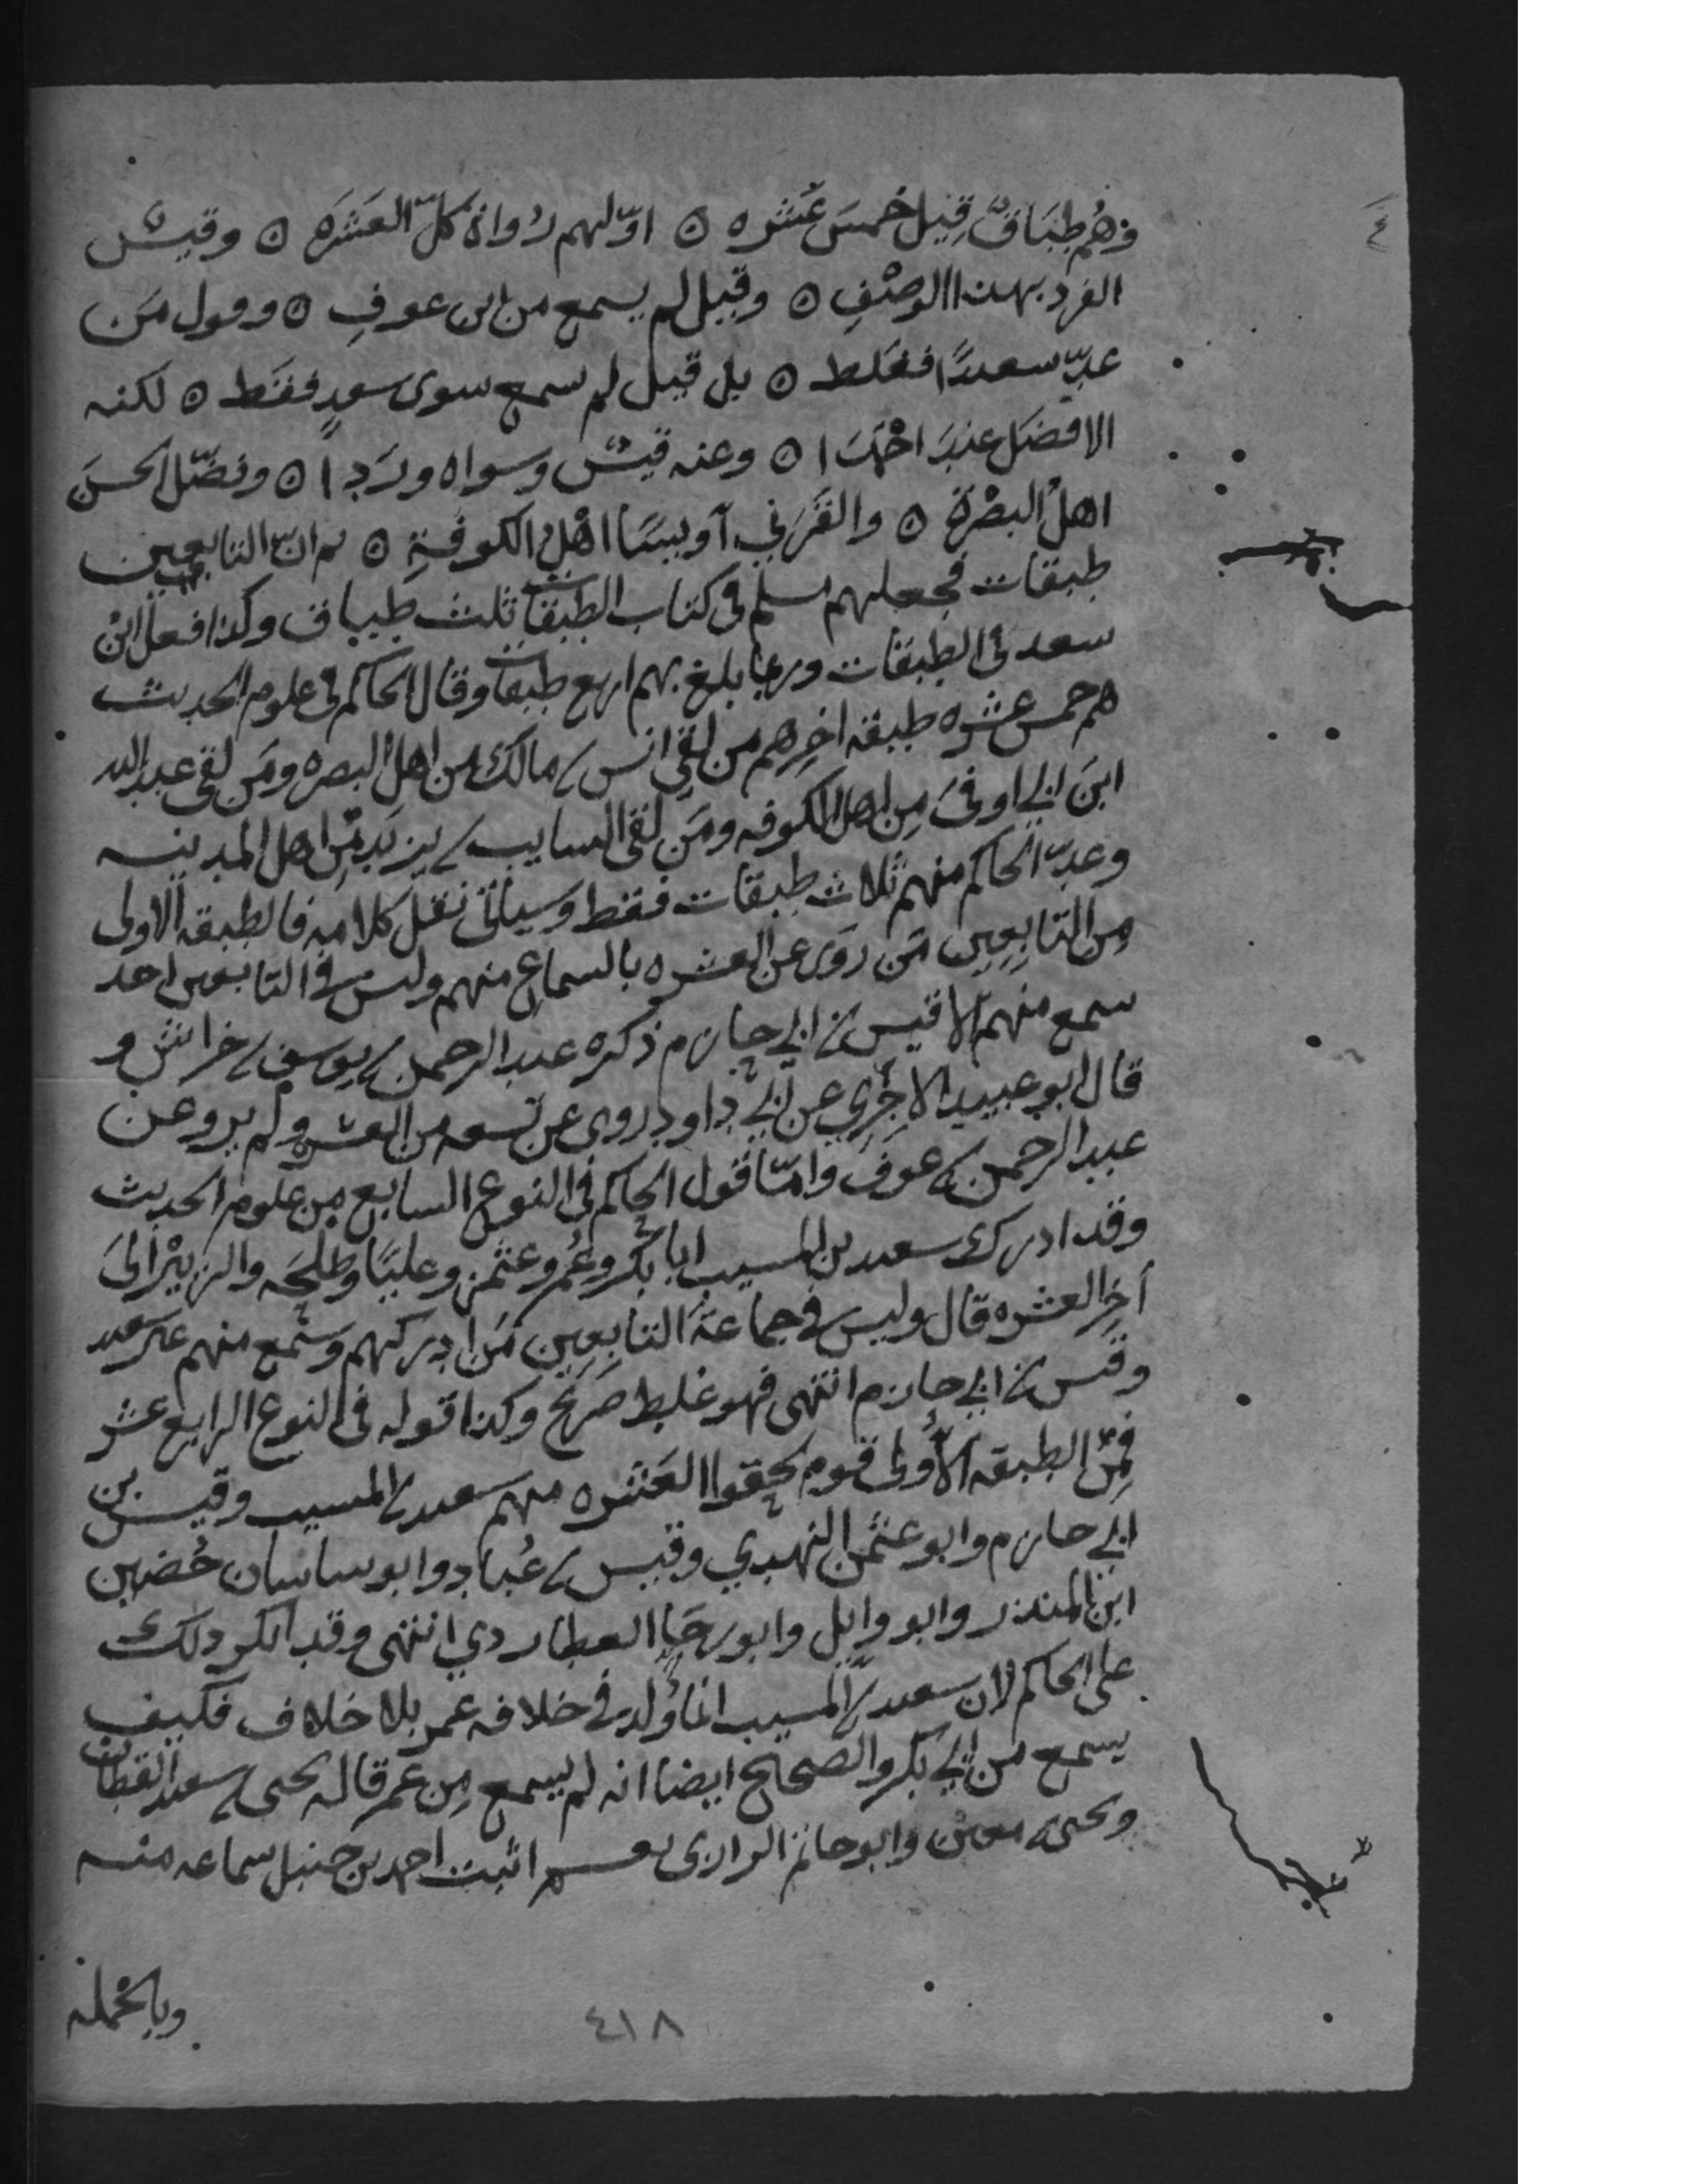 ٤
وهُم طِبَاقٌ قِيلَ خمسَ عَشره ٥ اوّلهم رُواةُ كلّ العَشَرَه ٥ وقيسٌ
الفرد بهذا الوصْفِ ٥ وقيل لم يسمع من ابن عوفِ ٥ وقول مَن
عدّ سعيدًا فغلط ٥ بل قيل لم سمع سوى سعدٍ فقط ٥ لكنه
الافضل عند احْمَدَا ٥ وعنه قيسٌ وسواه وردا ٥ وفضّل الحسنَ
اهلُ البصْرَةِ ٥ والقَرَني اويسًا اهْلُ الكوفَةِ ٥ ثم انّ التابعين
طبقات فجعلهم مسلم في كتاب الطبقات ثلث طباق وكذا فعل ابنُ
سعد في الطبقات وربما بلغ بهم اربع طبقات وقال الحاكم في علوم الحديث
هم خمس عشره طبقه اخرهم من لقي انس بن مالك من اهل البصره ومَن لقى عبد الله
ابنَ ابي اوفىَ مِن اهل الكوفه ومَن لقى السايب بن يزيد مِن اهل المدينه
وعدّ الحاكم منهم ثلاث طبقات فقط وسياتي نقل كلامه فالطبقه الاولى
مِن التابِعِين مَن روَى عن العشره بالسماع منهم وليس في التابعين احد
سمع منهم الا قيس بن ابي حازم ذكره عبد الرحمن بن يوسف بن خراش و
قال ابو عبيد الاجُرّي عن ابي داود روى عن تسعه من العشره ولم يرو عن
عبد الرحمن بن عوف وامّا قول الحاكم في النوع السابع مِن علوم الحديث
وقد ادرك سعيد بن المسيب ابا بكر وعُمر وعثمن وعليًا وطلحَه والزبيْر الىَ
آخِر العشره قال وليس في جماعَة التابِعِين مَن ادركهم وسَمع منهم غير سعيد
وقيس بن ابي حازم انتهى فهو غلط صَريح وكذا قوله في النوع الرابع عشر
فمِن الطبقه الاُولى قوم لحقوا العَشره منهم سعيد بن المسيب وقيس بن
ابي حازم وابو عثمن النهدي وقيس بن عُباد وابو ساسان حُضين
ابن المنذر وابو وايل وابو رجاءٍ العطاردي انتهى وقد انكر ذلك
على الحاكم لان سعيد بن المسيب انما وُلد في خلافه عمر بلا خلاف فكيف
يسمع من ابي بكر والصحيح ايضا انه لم يسمع مِن عمر قاله يحيى بن سعيد القطان
ويحيى بن معين وابو حاتم الرازي نعم اثبت احمد بن حنبل سماعه منه
وبالجمله
٤١٨